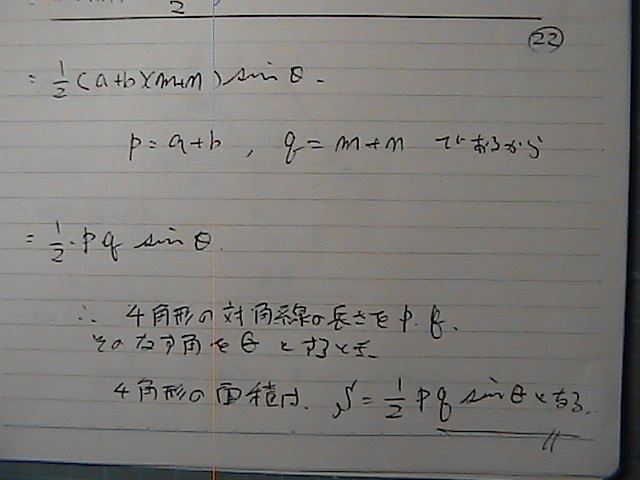 2
㉒
= 1/2 (a+b)(m+n) sin θ.
p = a+b , q = m+n であるから
= 1/2・p q sin θ.
∴ 4角形の対角線の長さを p. q.
そのなす角を θ とするとき.
4角形の面積は. S = 1/2 p q sin θ となる.